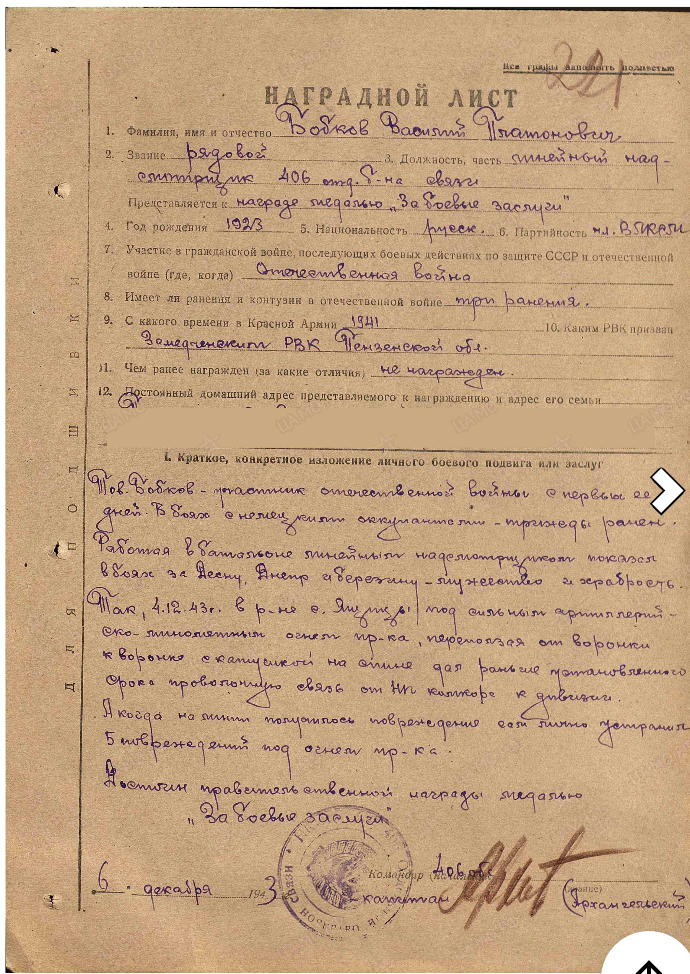 Все графы заполнять полностью
221
НАГРАДНОЙ ЛИСТ
1. Фамилия, имя и отчество Бобков Василий Платонович
2. Звание рядовой 3. Должность, часть линейный над-
смотрщик 406 отд. б-на связи
Представляется к награде медалью „За боевые заслуги"
4. Год рождения 1923 5. Национальность русск. 6. Партийность чл. ВЛКСМ
7. Участие в гражданской войне, последующих боевых действиях по защите СССР и отечественной
войне (где, когда) Отечественная война
8. Имеет ли ранения и контузии в отечественной войне три ранения.
9. С какого времени в Красной Армии 1941 10. Каким РВК призван
Земетченским РВК Пензенской обл.
11. Чем ранее награжден (за какие отличия) не награжден.
12. Постоянный домашний адрес представляемого к награждению и адрес его семьи
I. Краткое, конкретное изложение личного боевого подвига или заслуг
Тов. Бобков – участник отечественной войны с первых ее
дней. В боях с немецкими оккупантами – трижды ранен.
Работая в батальоне линейным надсмотрщиком показал
в боях за Десну, Днепр и Березину – мужество и храбрость.
Так, 4.12.43г. в р-не с. под сильным артиллерий-
ско-минометным огнем пр-ка, переползая от воронки
к воронке с катушкой на спине дал раньше установленного
срока проволочную связь от НП комкора к дивизии.
А когда на линии получилось повреждение сам лично устранил
5 повреждений под огнем пр-ка.
Достоин правительственной награды медалью
„За боевые заслуги"
Командир (начальник) 406 обс
6. декабря 1943 – капитан (Архангельский)
(звание)
ДЛЯ ПОДШИВКИ
СВЯЗИ